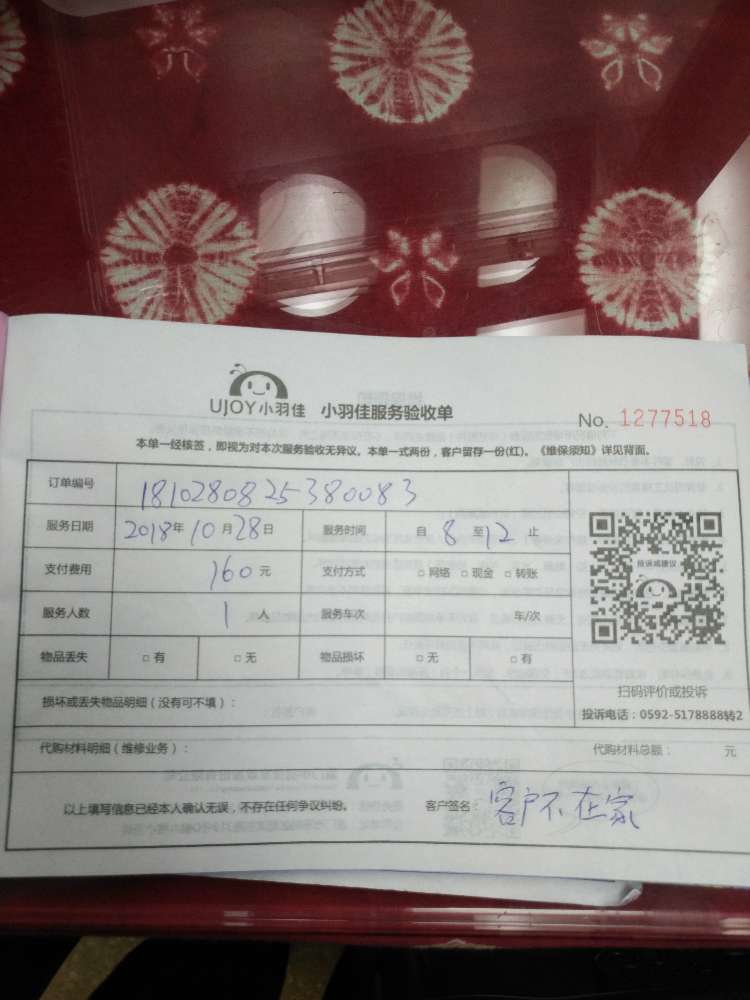 UJOY小羽佳 小羽佳服务验收单
No. 1277518
本单一经核签，即视为对本次服务验收无异议。本单一式两份，客户留存一份(红)。《维保须知》详见背面。
订单编号 1810280825380083
服务日期 2018年10月28日 服务时间 自 8 至 12 止
支付费用 160元 支付方式 □网络 □现金 □转账
服务人数 1 人 服务车次 车/次
物品丢失 □有 □无 物品损坏 □无 □有
投诉或建议
扫码评价或投诉
投诉电话：0592-5178888转2
损坏或丢失物品明细（没有可不填）：
代购材料明细（维修业务）： 代购材料总额： 元
以上填写信息已经本人确认无误，不存在任何争议纠纷。 客户签名：客户不在家